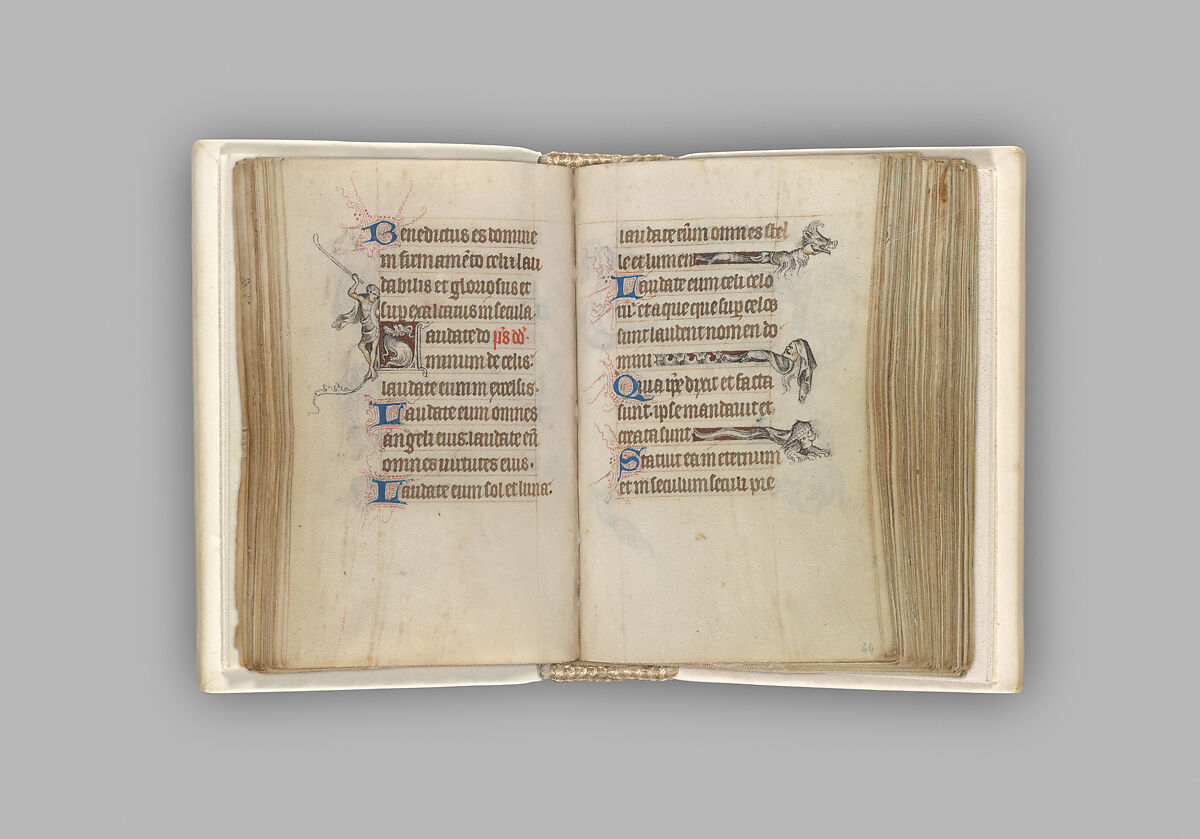 Benedictus es domine
in firmame̅to celi. lau
dabilis et gloriosus et
sup̲exaltatus in secula.
Laudate do p̅s d̅d̅.
minum de celis:
laudate eum in excelsis.
Laudate eum omnes
angeli eius. laudate eu̅
omnes uirtutes eius.
Laudate eum sol et luna.
laudate eu̅m omnes stel
le et lumen
Laudate eum celi celo
ru̅. et aque que sup̲ celos
sunt laudent nomen do
mini
Quia ip̅e dixit et facta
sunt. ipse mandauit et
creata sunt
Statuit ea in eternum
et in seculum seculi pre
44